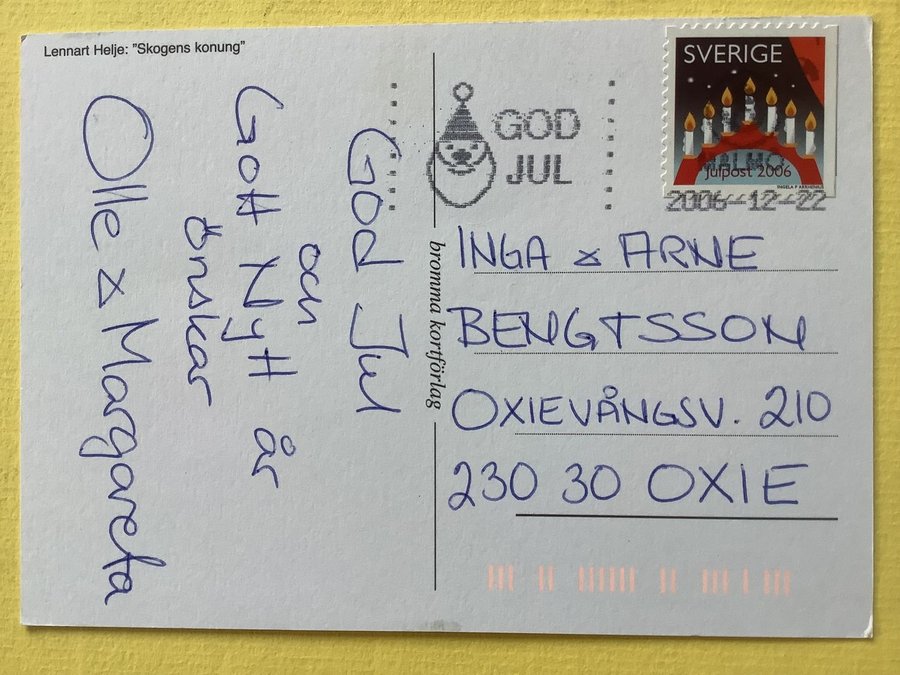 Lennart Helje: "Skogens konung"
God Jul
och
Gott Nytt år
önskar
Olle & Margareta
bromma kortförlag
GOD
JUL
SVERIGE
MALMÖ
Julpost 2006
INGELA P ARRHENIUS
2006-12-22
INGA & ARNE
BENGTSSON
OXIEVÅNGSV. 210
230 30 OXIE